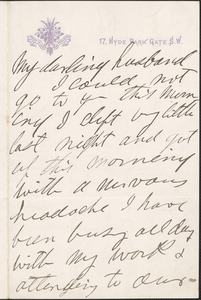 17, HYDE PARK GATE. S.W.
My darling husband
I could not
go to y this morn
ing I slept very little
last night and got
up this morning
with a nervous
headache I have
been busy all day
with my work &
attending to our